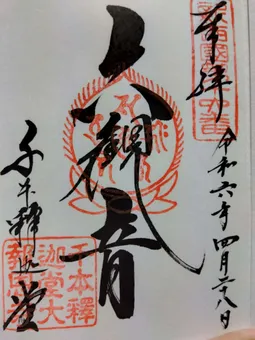 奉拝
令和六年四月二八日
六観音
千本釋迦堂
千本釋
迦堂大
報恩寺